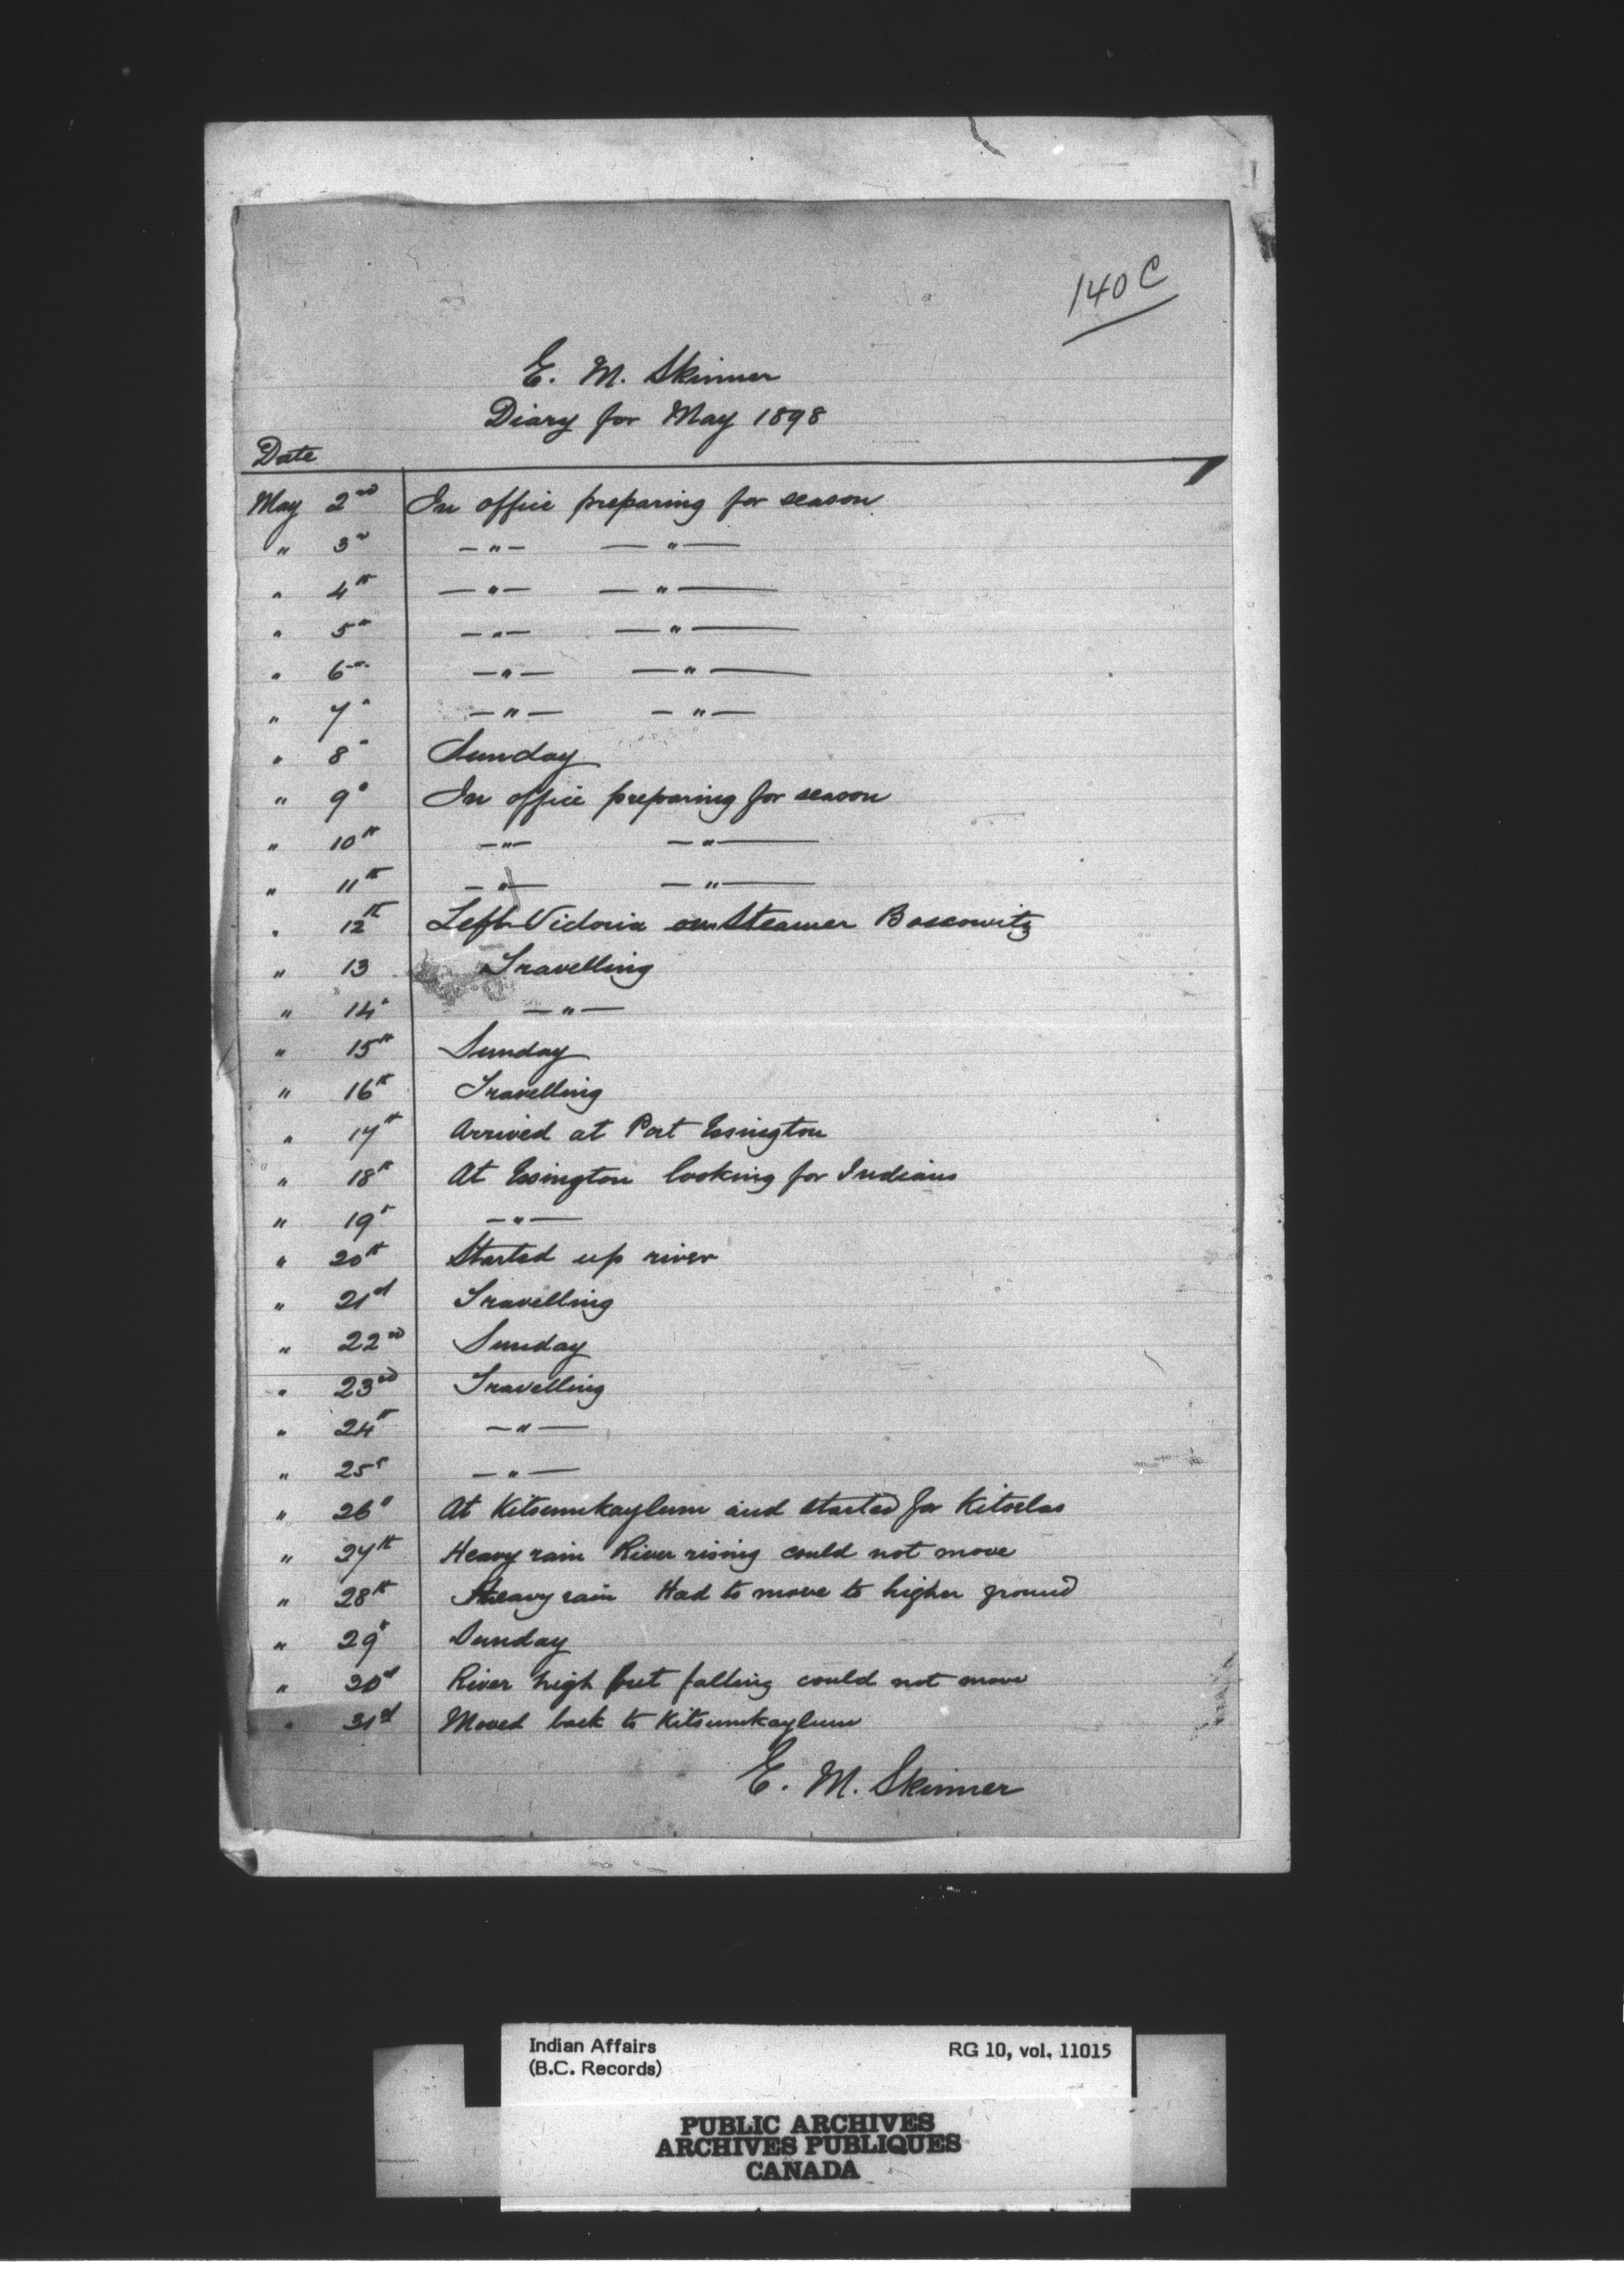 140 C
E. M. Skinner
Diary for May 1898
Date
May 2nd In office preparing for season
" 3rd — " — — " —
" 4th — " — — " —
" 5th — " — — " —
" 6th — " — — " —
" 7" — " — — " —
" 8" Sunday
" 9" In office preparing for season
" 10th — " — — " —
" 11th — " — — " —
" 12th Left Victoria on Steamer Boscowitz
" 13 Travelling
" 14" — " —
" 15th Sunday
" 16th Travelling
" 17th Arrived at Port Essington
" 18th At Essington looking for Indians
" 19th — " —
" 20th Started up river
" 21st Travelling
" 22nd Sunday
" 23rd Travelling
" 24th — " —
" 25th — " —
" 26" At Kitsumkaylum and started for Kitselas
" 27th Heavy rain River rising could not move
" 28th Heavy rain Had to move to higher ground
" 29th Sunday
" 30th River high but falling could not move
" 31st Moved back to Kitsumkaylum
E. M. Skinner
Indian Affairs RG 10, vol. 11015
(B.C. Records)
PUBLIC ARCHIVES
ARCHIVES PUBLIQUES
CANADA